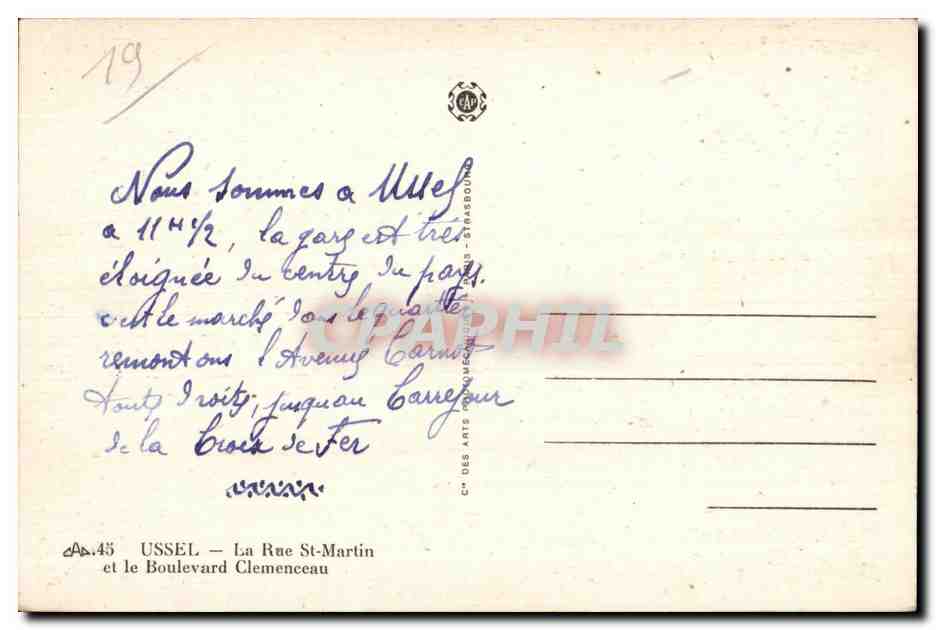 19
CAP
Nous sommes a Ussel
a 11 H 1/2, la gare est très
éloignée du centre du pays.
c'est le marché dans le quartier
remontons l'Avenue Carnot
toute droite, jusqu'au Carrefour
de la Croix de Fer
Cie DES ARTS PHOTOMECANIQUES PARIS - STRASBOURG
CPAPHIL
CAP. 45 USSEL — La Rue St-Martin
et le Boulevard Clemenceau